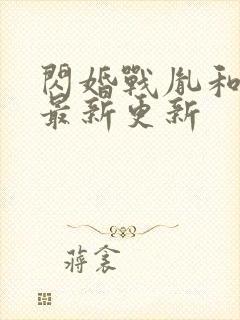 閃婚戰胤和
最新更新
蔣衾